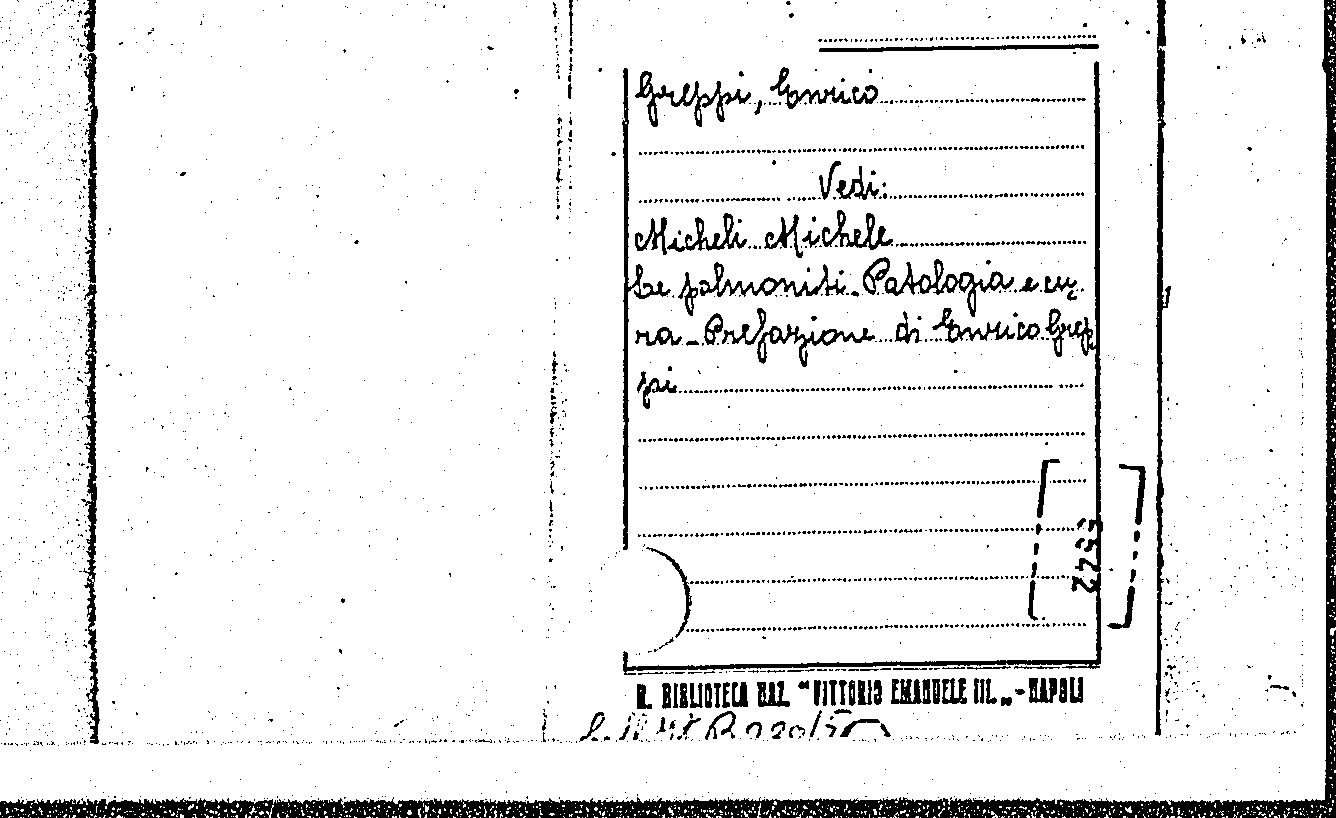 Greppi, Enrico
Vedi:
Micheli Michele
Le polmoniti. Patologia e cu-
ra - Prefazione di Enrico Grep-
pi
5522
R. BIBLIOTECA NAZ. "VITTORIO EMANUELE III." - NAPOLI